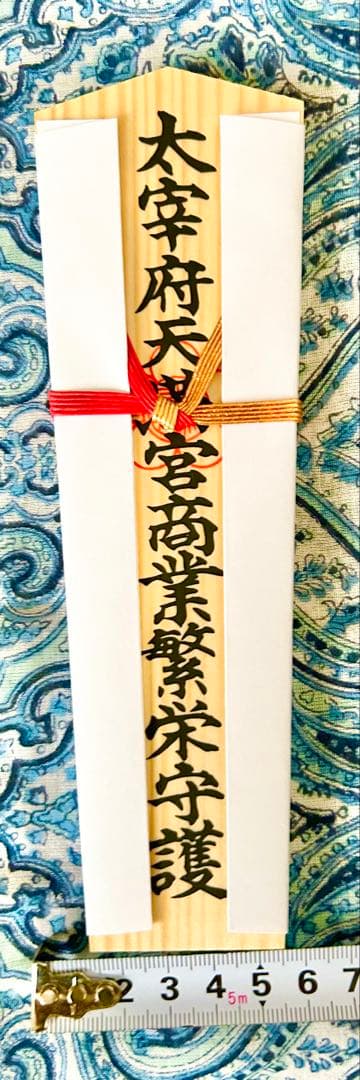 太宰府天満宮商業繁栄守護
2 3 4 5 6 7
5m